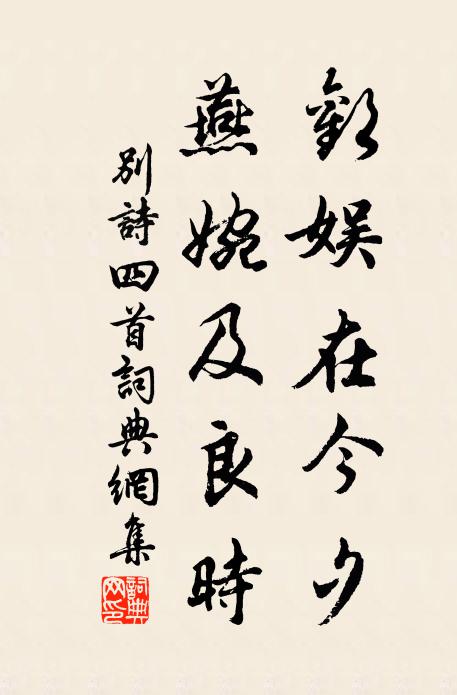 歡娱在今夕
燕婉及良時
別詩四首詞典網集
詞典网印